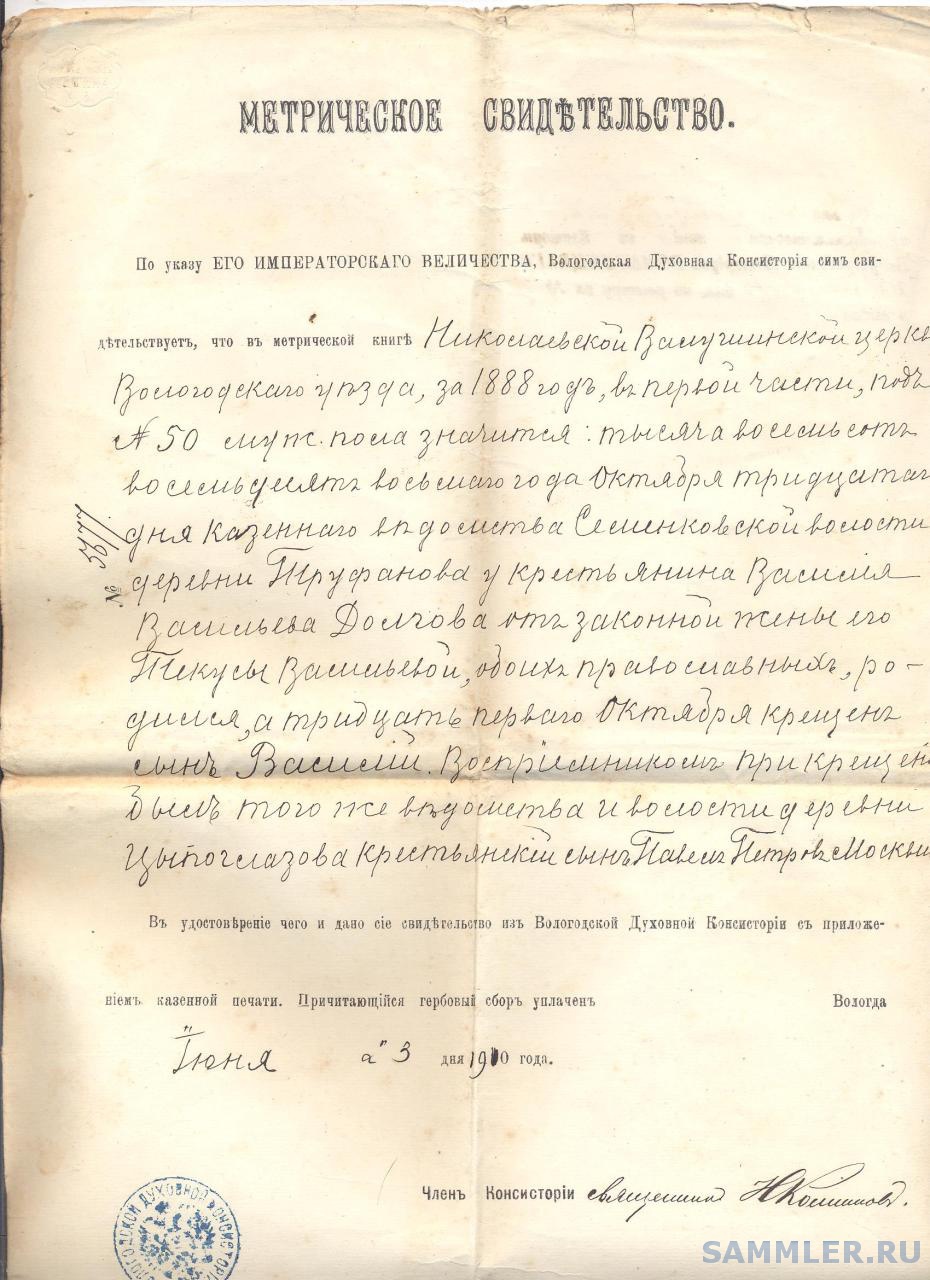 МЕТРИЧЕСКОЕ СВИДѢТЕЛЬСТВО.
По указу ЕГО ИМПЕРАТОРСКАГО ВЕЛИЧЕСТВА, Вологодская Духовная Консисторія симъ сви-
дѣтельствуетъ, что въ метрической книгѣ Николаевской Валушинской церкв
Вологодскаго уѣзда, за 1888 годъ, въ первой части, подъ
№ 50 муж. пола значится: тысяча восемьсотъ
восемьдесятъ восьмаго года Октября тридцатаг
дня казеннаго вѣдомства Семенковской волости
деревни Труфанова у крестьянина Василія
Васильева Долчова отъ законной жены его
Текусы Васильевой, обоихъ православныхъ, ро-
дился, а тридцать перваго Октября крещенъ
сынъ Василій. Воспріемникомъ при крещен
былъ того же вѣдомства и волости деревни
Цыпоглазова крестьянскій сынъ Павелъ Петровъ
№ 5977
Въ удостовѣреніе чего и дано сіе свидѣтельство изъ Вологодской Духовной Консисторіи съ приложе-
ніемъ казенной печати. Причитающійся гербовый сборъ уплаченъ Вологда
Іюня "3 дня 1910 года.
Членъ Консисторіи священникъ
ВОЛОГОДСКОЙ ДУХОВНОЙ КОНСИСТОРІИ
SAMMLER.RU